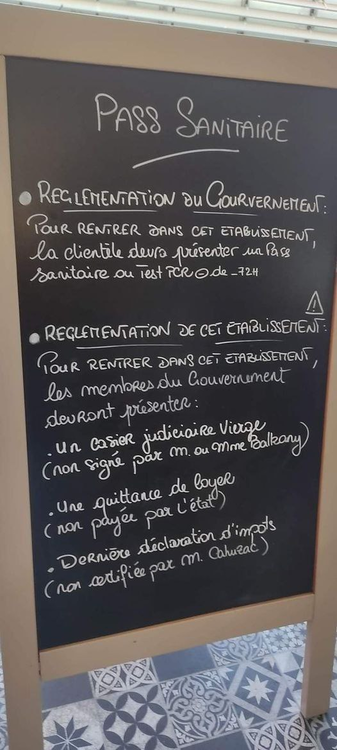 PASS SANITAIRE
• REGLEMENTATION DU GOURVERNEMENT :
POUR RENTRER DANS CET ETABLISSEMENT,
la clientèle devra présenter un Pass
sanitaire ou Test PCR ⊖ de -72H
⚠
• REGLEMENTATION DE CET ETABLISSEMENT :
POUR RENTRER DANS CET ETABLISSEMENT,
les membres du Gouvernement
devront présenter :
. Un casier judiciaire Vierge
(non signé par M. ou Mme Balkany)
. Une quittance de loyer
(non payée par l'état)
. Dernière déclaration d'impots
(non certifiée par M. Cahuzac)